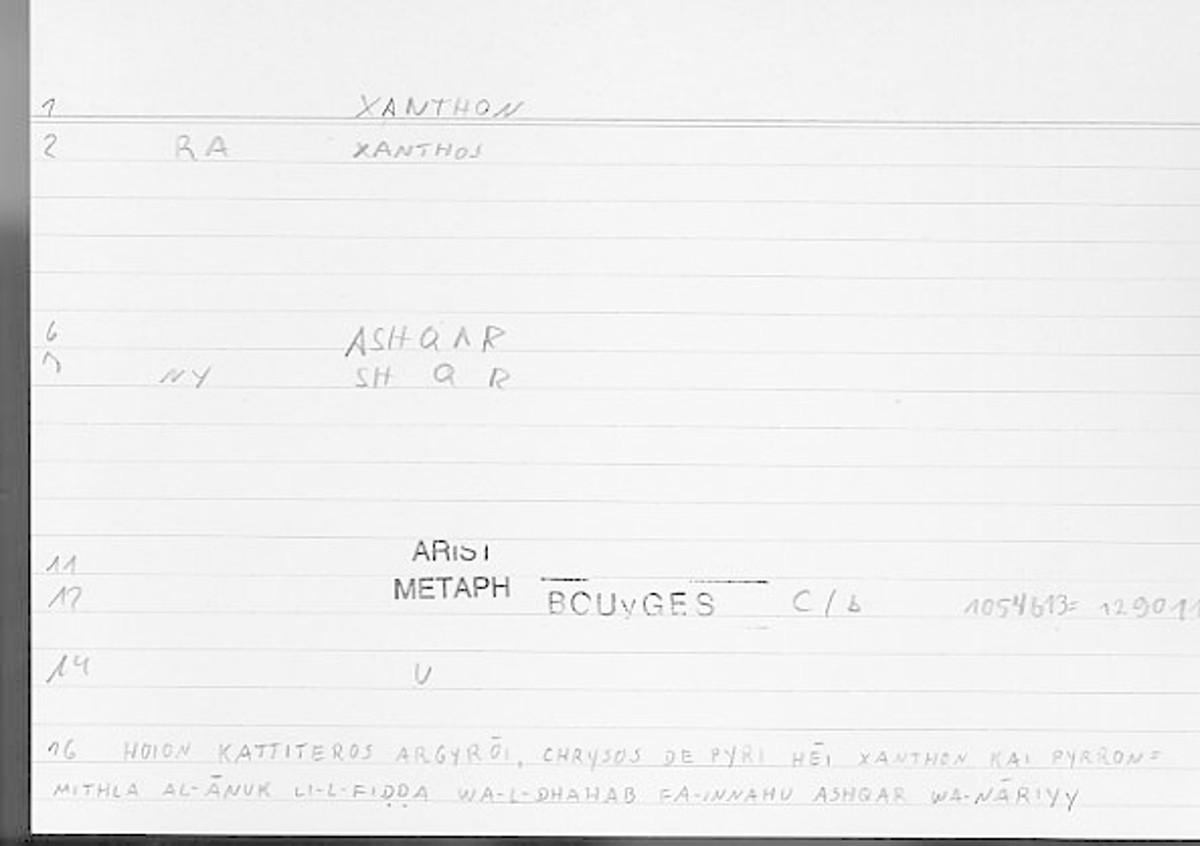 1 XANTHON
2 RA XANTHOS
6 ASHQAR
7 NY SH Q R
11 ARIST
12 METAPH BOUYGES C/b 1054b13= 129011
14 U
16 HOION KATTITEROS ARGYRŌI, CHRYSOS DE PYRI HĒI XANTHON KAI PYRRON=
MITHLA AL-ĀNUK LI-L-FIḌḌA WA-L-DHAHAB FA-INNAHU ASHQAR WA-NĀRIYY